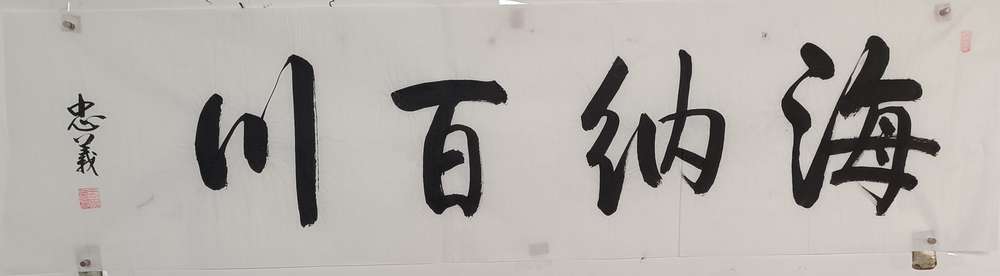 海纳百川
忠义